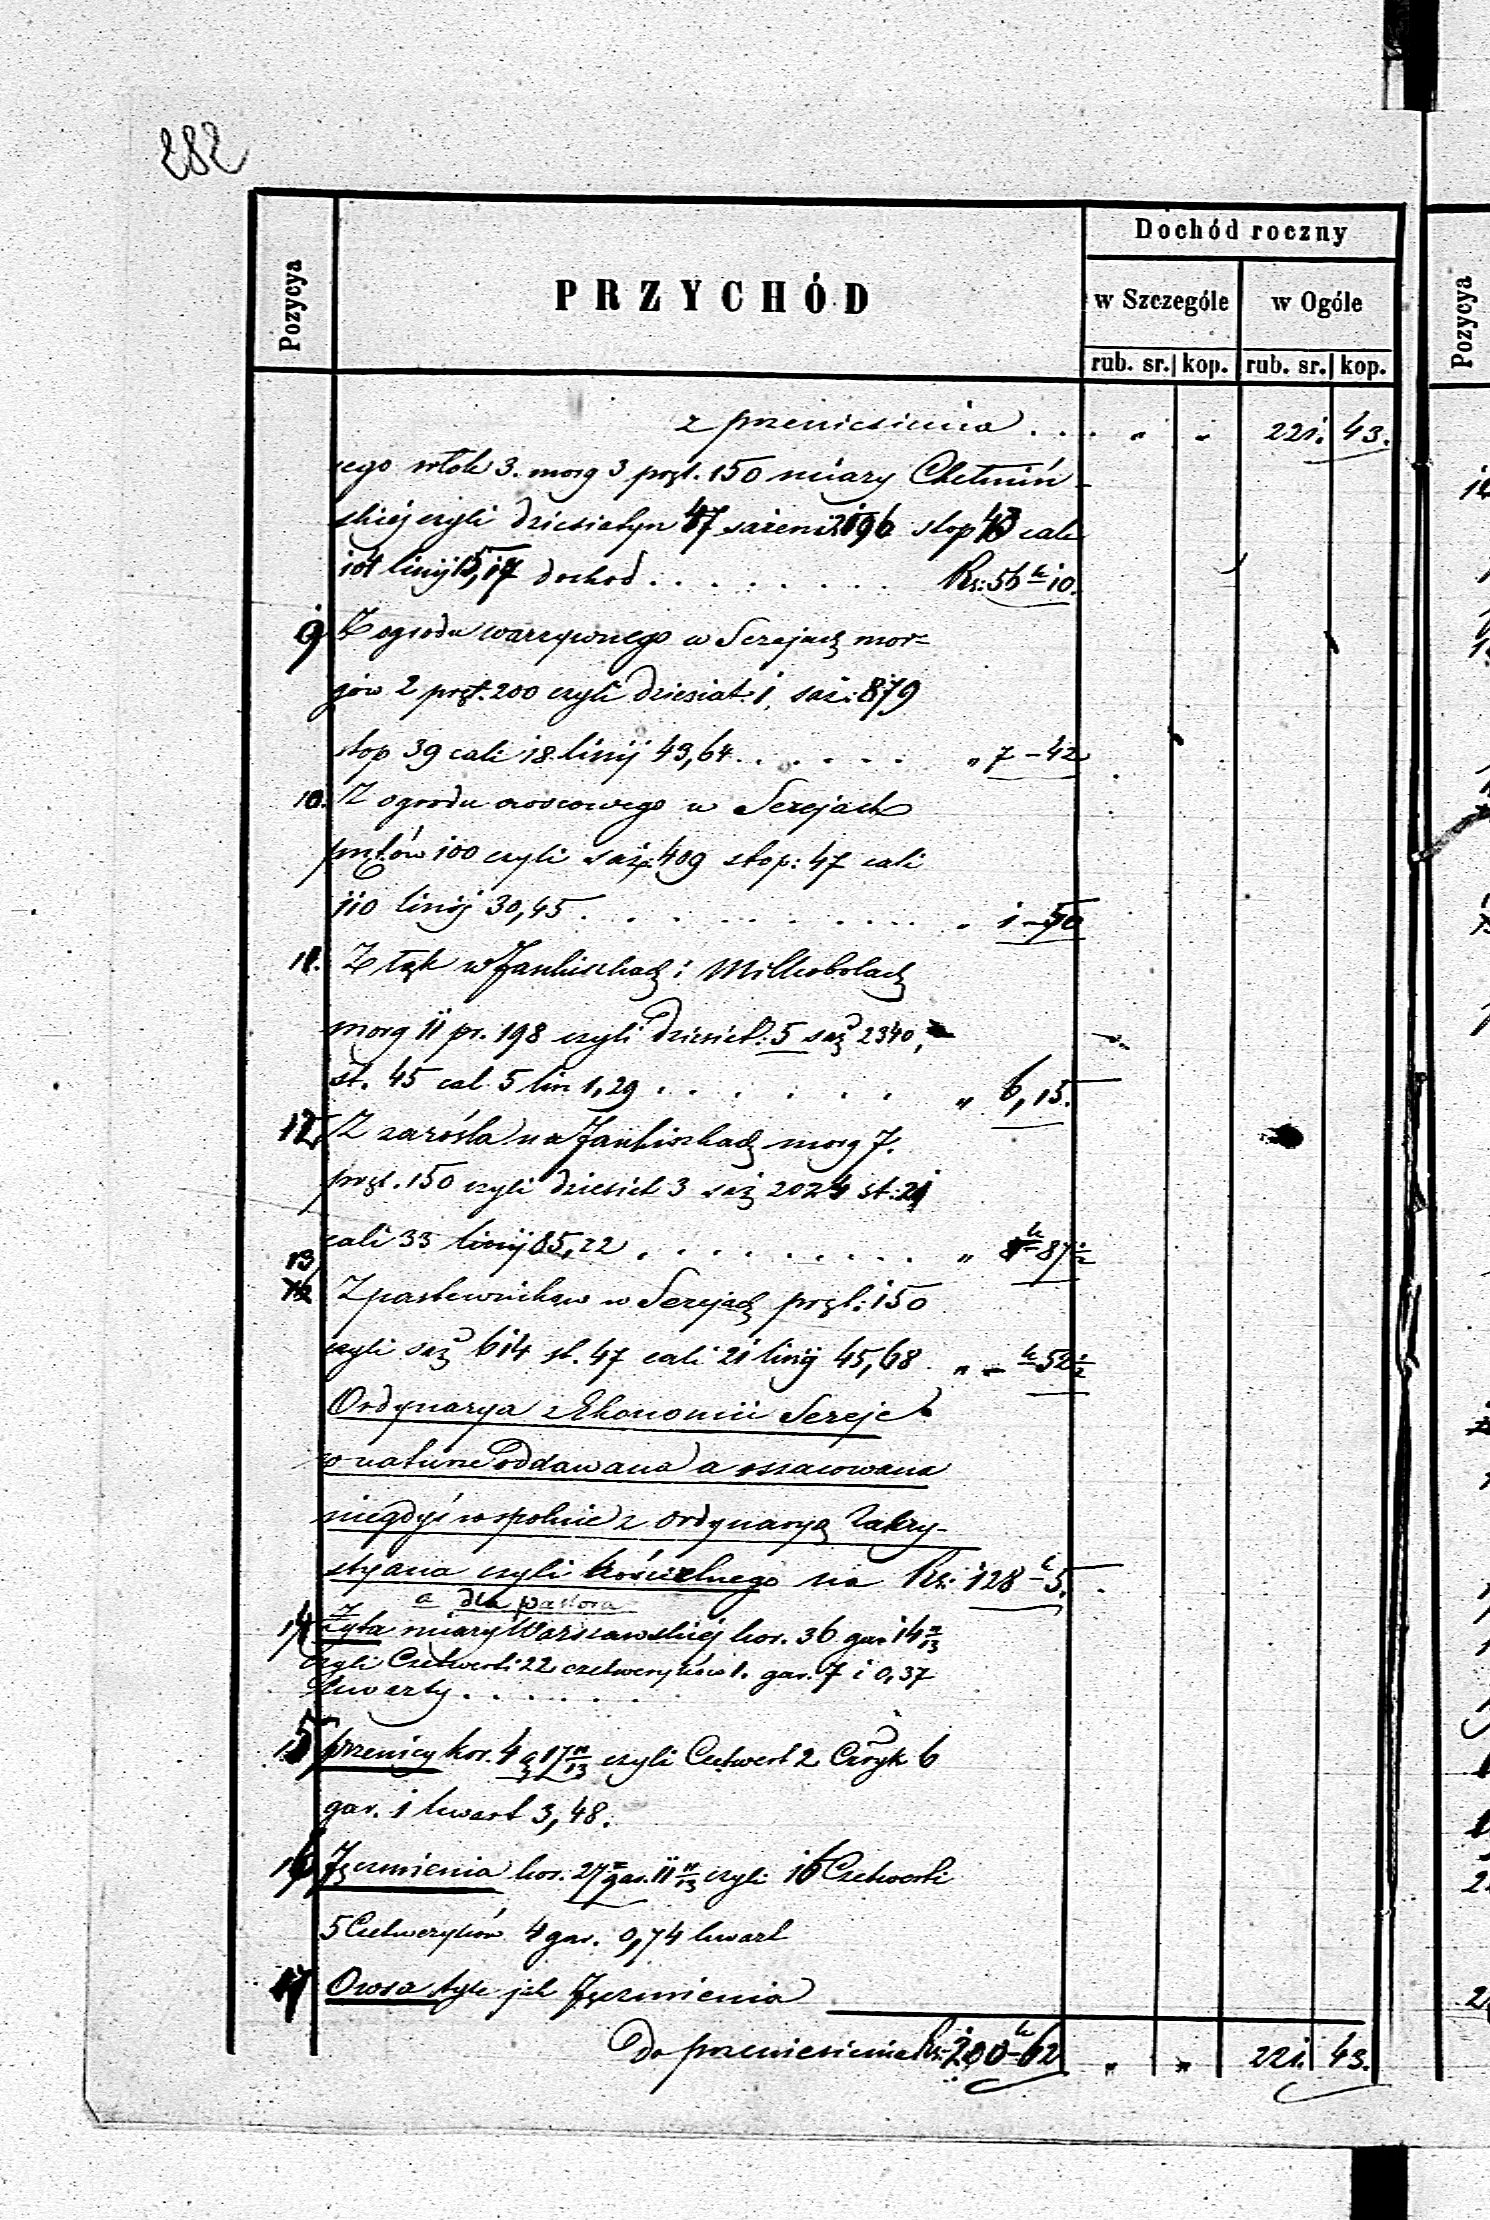 282
Pozycya
PRZYCHÓD
Dochód roczny
w Szczególe
w Ogóle
rub. sr. kop. rub. sr. kop.
Pozycya
z przeniesienia . . . " " 221. 43.
włok 3. morg 3 pręt. 150 miary Chełmiń-
skiej czyli dziesiatyn 47 sążeni 2196 stop cali
linij dochod . . . . . . . . . Rs: 56 k 10.
9 Z ogrodu warzywnego w Serejach mor=
gów 2 pręt. 200 czyli dziesiat. 1, saż: 879
stop 39 cali 18 linij 43,64 . . . . . . " 7 - 42
10. Z ogrodu owocowego w Serejach
prętów 100 czyli saż: 409 stop: 47 cali
110 linij 30,45 . . . . . . . . . " 1 - 50
11. Z łąk w Jankiszkach i Milkobolach
morg 11 pr. 198 czyli dziesiat: 5 saż 2340,
st. 45 cal 5 lin 1,29 . . . . . . " 6, 15.
12, Z zarośla na Jankiszkach morg 7.
pręt. 150 czyli dziesiat 3 saż 2024 st: 21
cali 33 linij 85,22 . . . . . . . . " 8 k 87 1/2
13
Z pastewników w Serejach pręt: 150
czyli saż 614 st. 47 cali 21 linij 45,68 . " - k 52 1/2
Ordynarya z Ekonomii Sereje
w naturze oddawana a oszacowana
niegdyś wspólnie z ordynaryą Zakry-
styana czyli kościelnego na Rs: 128 k 5.
a dla pastora
14 Żyta miary Warszawskiej kor. 36 gar 14 /13
czyli Czetwerti 22 czetweryków 1. gar. 7 i 0,37
kwarty . . . . . .
15 pszenicy kor. 4 g 17 /13 czyli Czetwert 2 Czryk 6
gar. 1 kwart 3,48.
16 Jęczmienia kor. 27 gar. 11 /13 czyli 16 Czetwerti
5 Czetweryków 4 gar. 0,74 kwart
17 Owsa tyle jak Jęczmienia
Do przeniesienia Rs: 200 k 62 " " 221 43.